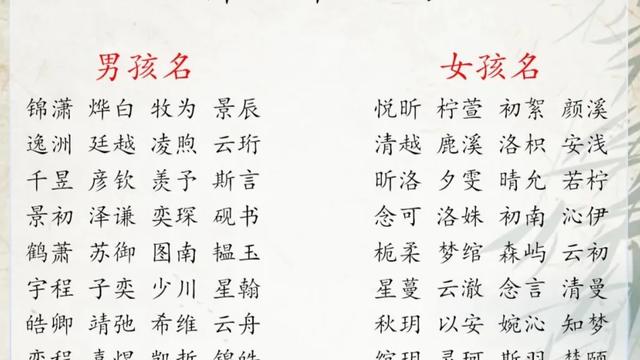 男孩名 女孩名
锦潇 烨白 牧为 景辰 悦昕 柠萱 初絮 颜溪
逸洲 廷越 凌煦 云珩 清越 鹿溪 洛枳 安浅
千昱 彦钦 羡予 斯言 昕洛 夕雯 晴允 若柠
景初 泽谦 奕琛 砚书 念可 洛姝 初南 沁伊
鹤萧 苏御 图南 韫玉 栀柔 梦绾 森屿 云初
宇程 子奕 少川 星翰 星蔓 云澈 念言 清曼
皓卿 靖弛 希维 云舟 秋玥 以安 婉沁 知梦